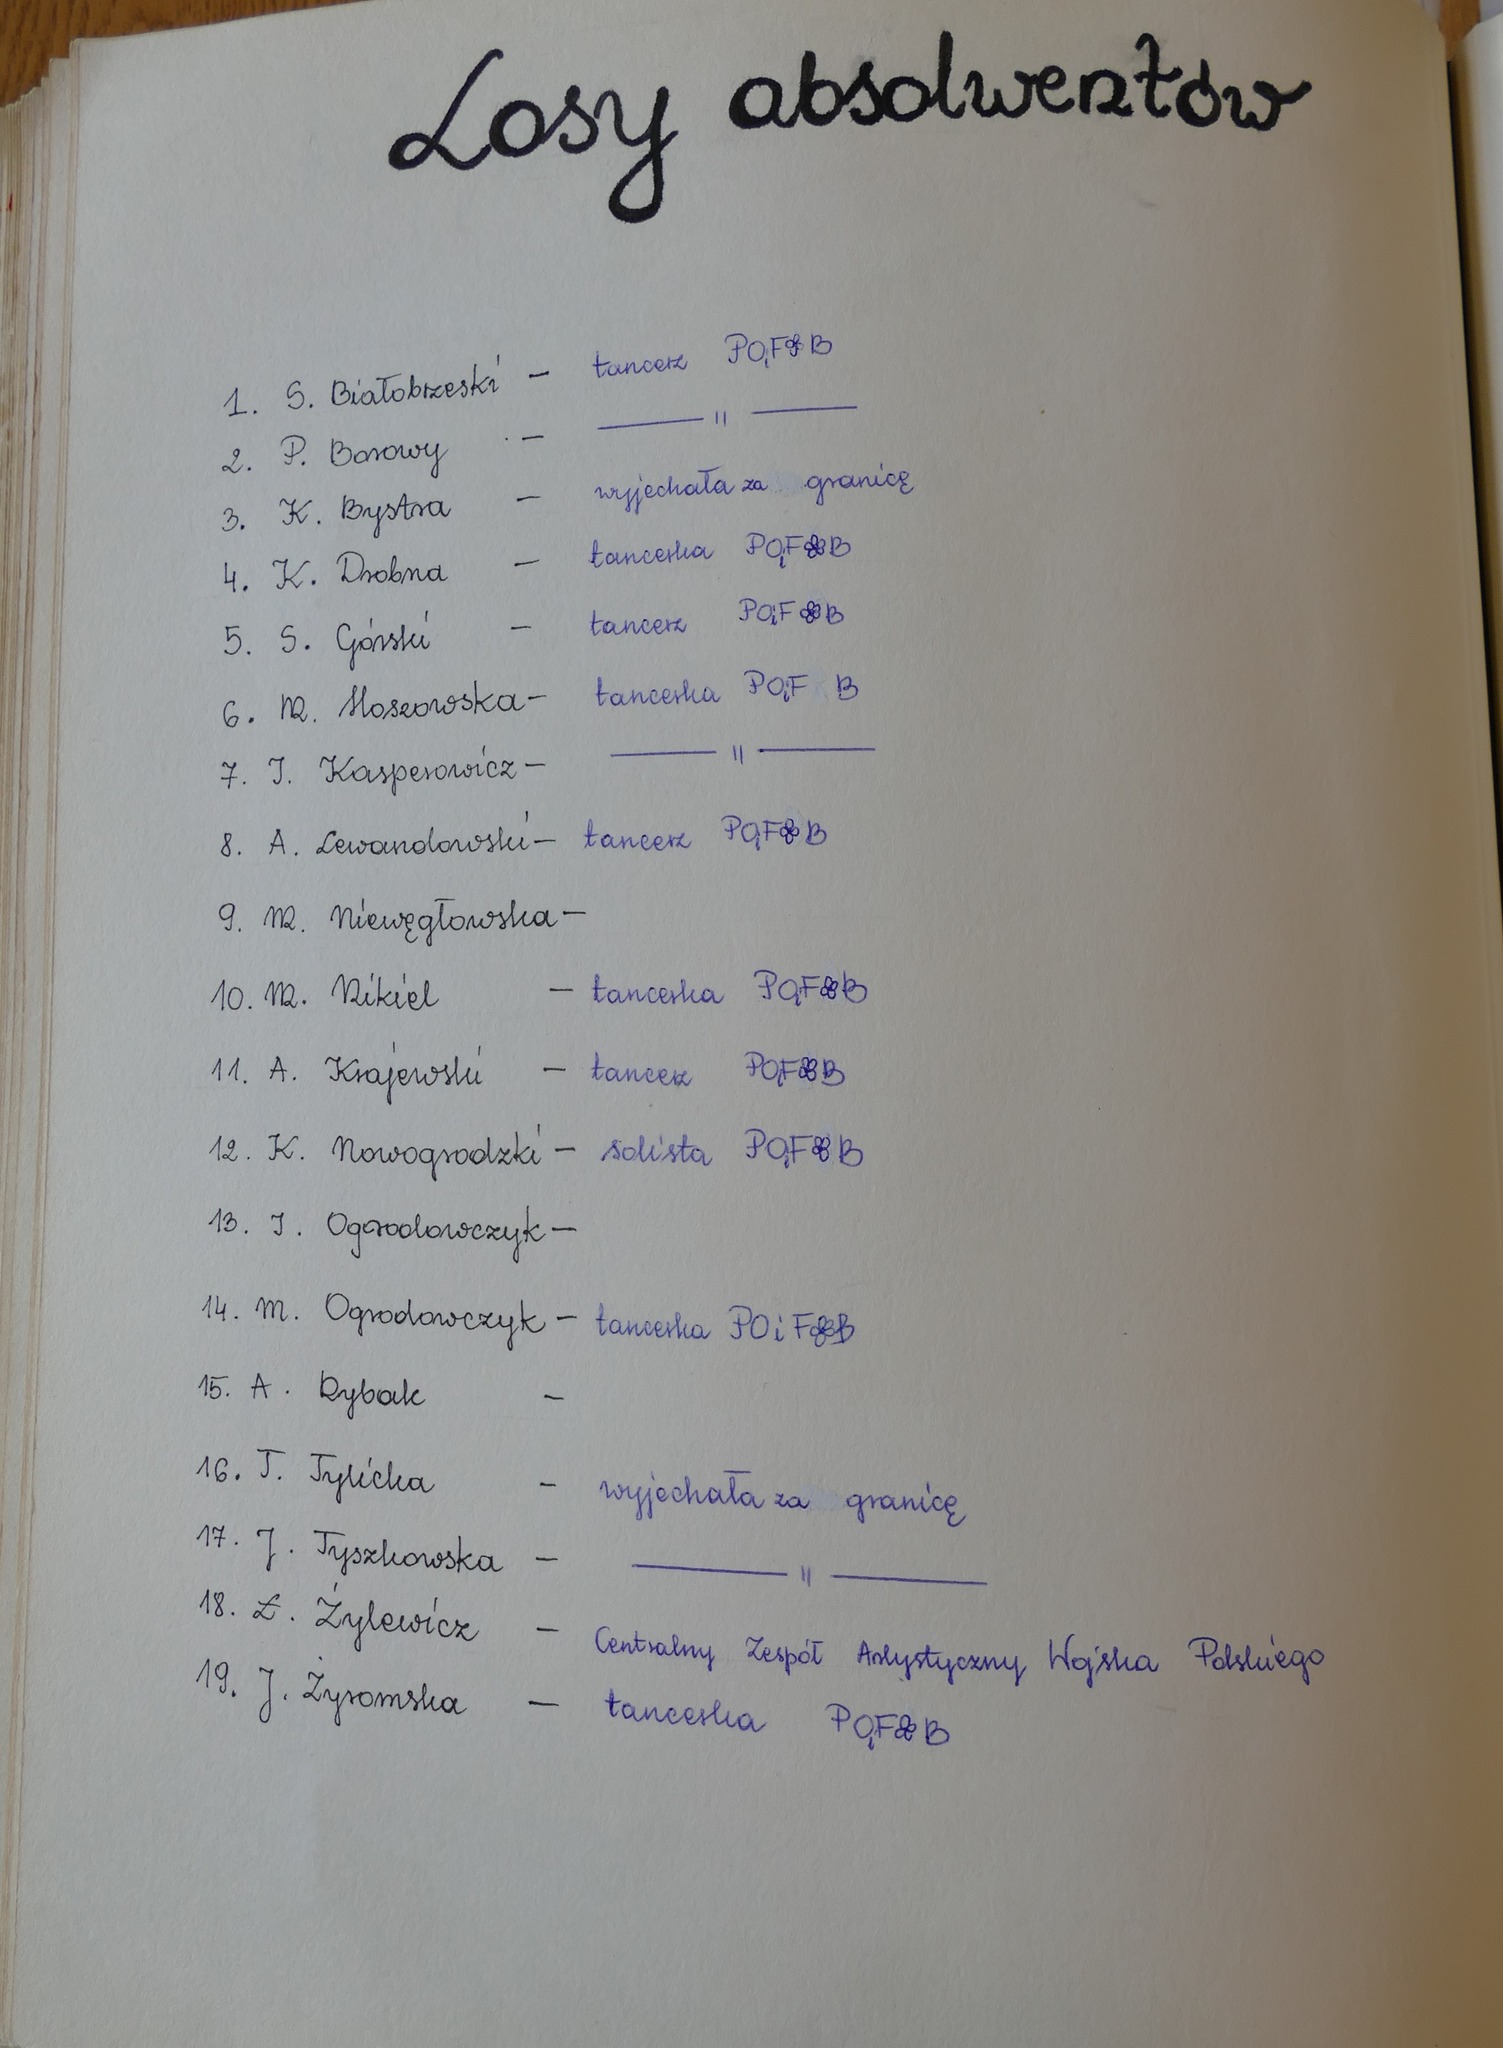 Losy absolwentów
1. S. Białobrzeski – tancerz POiF B
2. P. Borowy – — " —
3. K. Bystra – wyjechała za granicę
4. K. Drobna – tancerka POiF B
5. S. Górski – tancerz POiF B
6. M. Hoszowska – tancerka POiF B
7. I. Kasperowicz – — " —
8. A. Lewandowski – tancerz POiF B
9. M. Niewęgłowska –
10. M. Nikiel – tancerka POiF B
11. A. Krajewski – tancerz POiF B
12. K. Nowogrodzki – solista POiF B
13. I. Ogrodowczyk –
14. M. Ogrodowczyk – tancerka POiF B
15. A. Rybak –
16. T. Tylicka – wyjechała za granicę
17. J. Tyszkowska – — " —
18. Ż. Żylewicz – Centralny Zespół Artystyczny Wojska Polskiego
19. J. Żyromska – tancerka POiF B